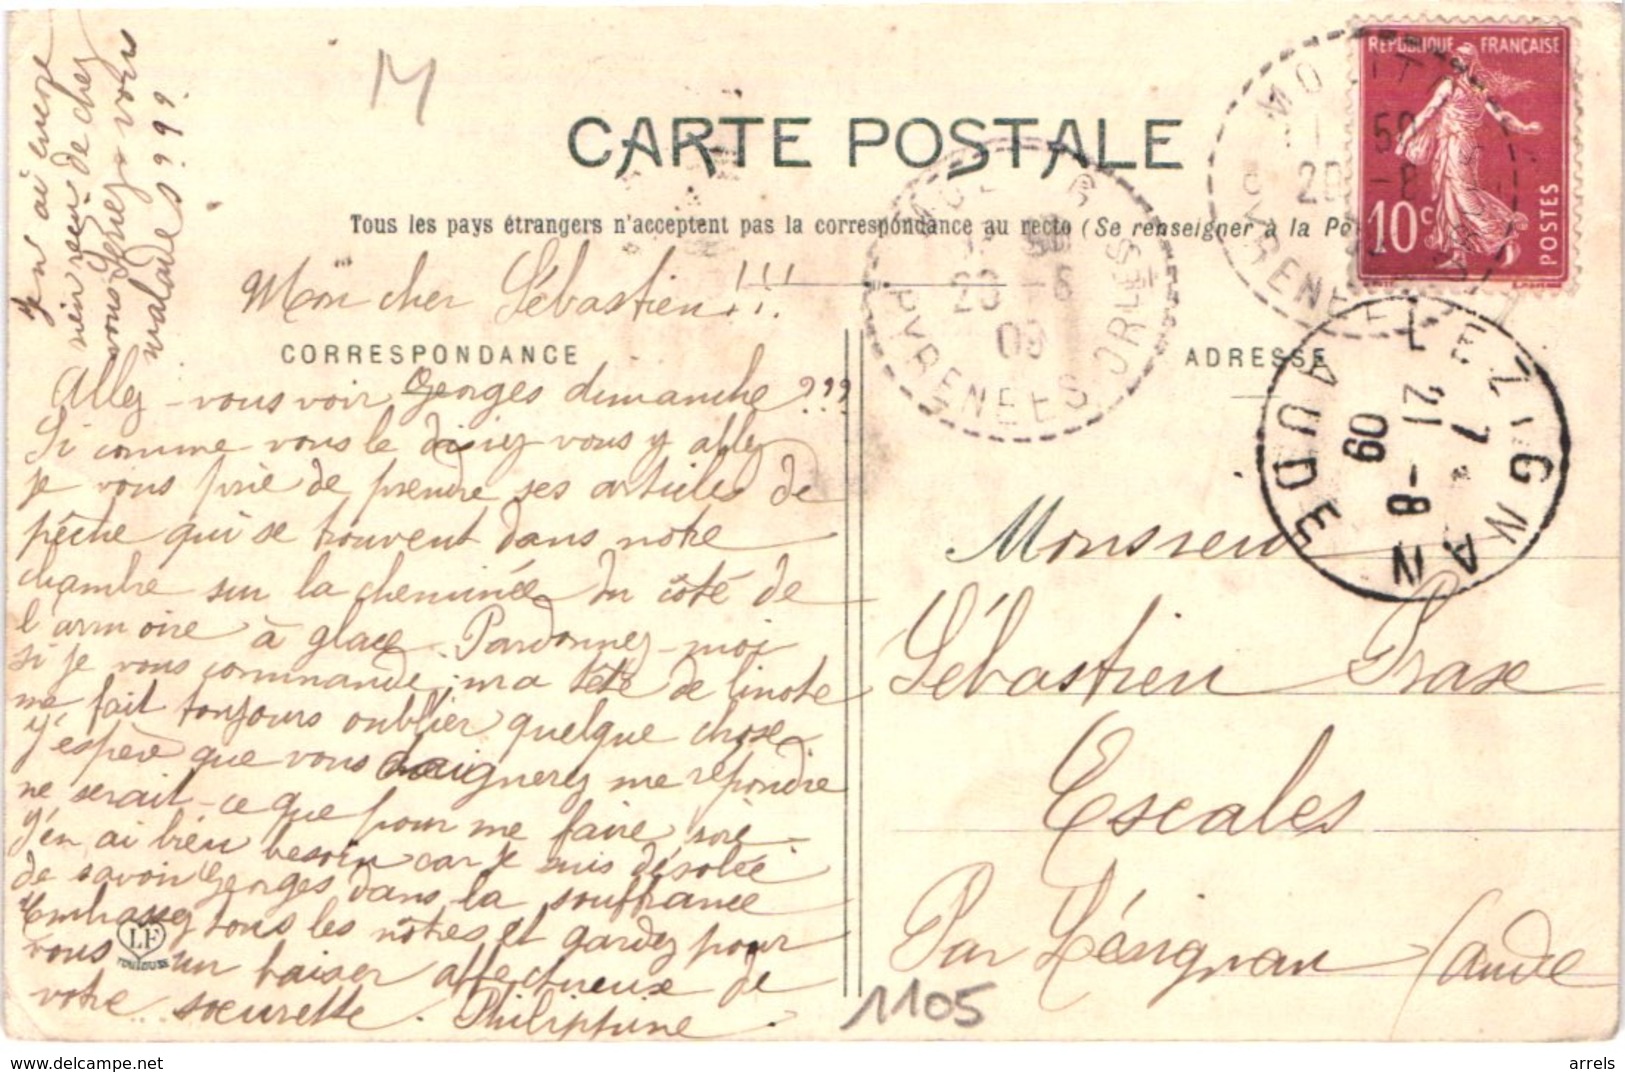 J'en ai encore
rien reçu de chez
vous Seriez-vous
malades ???
M
CARTE POSTALE
Tous les pays étrangers n'acceptent pas la correspondance au recto (Se renseigner à la Po
RÉPUBLIQUE FRANÇAISE
10c
POSTES
PYRENEES ORLES
20 -8
09
LEZIGNAN
7
21 -8
09
AUDE
CORRESPONDANCE
ADRESSE
Mon cher Sébastien!!!
Allez-vous voir Georges dimanche ???
Si comme vous le disiez vous y allez
je vous prie de prendre ses articles de
pêche qui se trouvent dans notre
chambre sur la cheminée du côté de
l'armoire à glace. Pardonnez-moi
si je vous commande; ma tête de linote
me fait toujours oublier quelque chose.
J'espère que vous daignerez me répondre
ne serait-ce que pour me faire rire.
J'en ai bien besoin car je suis désolée
de savoir Georges dans la souffrance
Embrassez tous les nôtres et gardez pour
vous un baiser affectueux de
votre soeurette. Philippine.
LF
TOULOUSE
Monsieur
Sébastien Prax
Escales
Par Lézignan (Aude
1105
delcampe.net
arrels